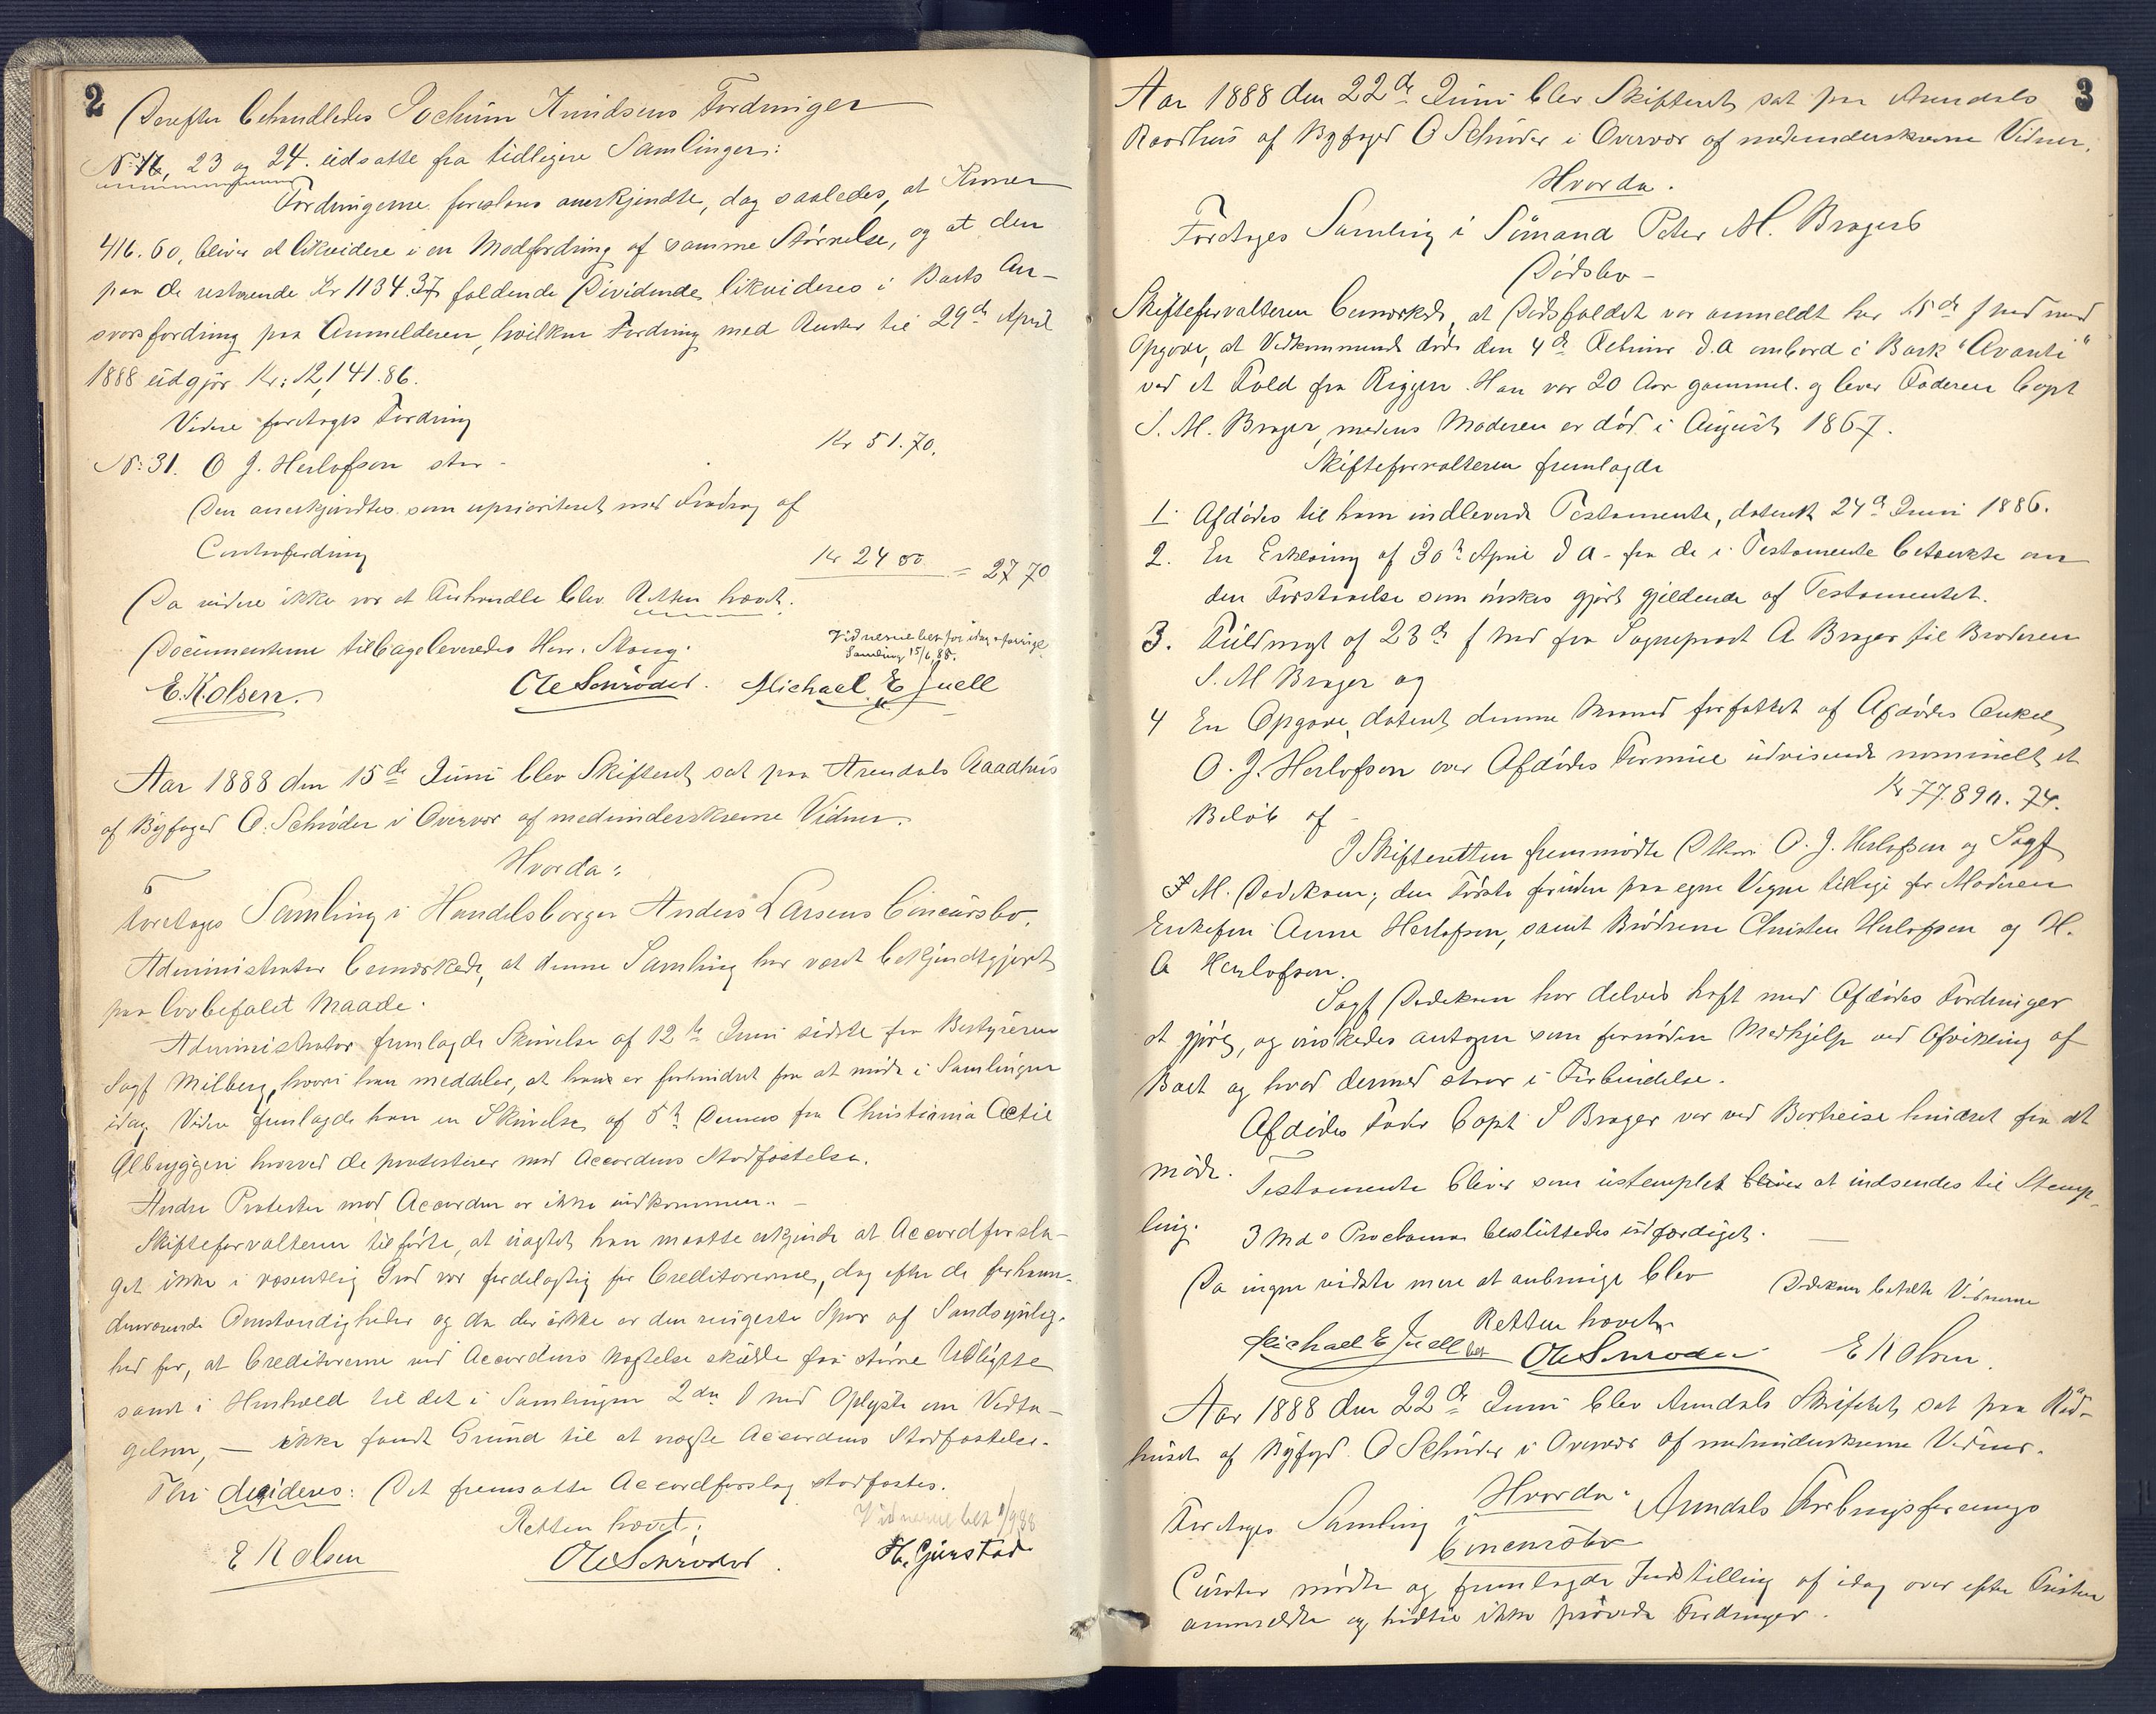 2
Derefter behandledes Jochum Knudsens Fordringer
No 12, 23 og 24. udsatte fra tidligere Samlinger:
Fordringerne foreslaaes anerkjendte, dog saaledes, at Kroner
416.60, bliver at likvidere i en Modfordring af samme Størrelse, og at den
paa de resterende Kr 1134.37 faldende Dividende likvideres i Boets An-
svarsfordring paa Anmelderen, hvilken Fordring med Renter til 29de April
1888 udgjør Kr: 12,141.86.
Videre foretages Fordring
No: 31. O J. Herlofson stor - Kr 51.70.
Den anerkjendtes som uprioriteret med Fradrag af
Contrafordring Kr 24 00 = 27 70
Da videre ikke var at forhandle blev Retten hævet.
Documenterne tilbageleveredes Herr. Stang.
Vidnerne bet for idag & forrige
Samling 15/6 88.
E. K. olsen. Ole Schrøder. Michael E Juell
Aar 1888 den 15de Juni blev Skifteret sat paa Arendals Raadhus
af Byfoged O. Schrøder i Overvær af medunderskrevne Vidner.
Hvorda:
Foretoges Samling i Handelsborger Anders Larsens Concursbo.
Administrator bemærkede, at denne Samling har været bekjendtgjort
paa lovbefalet Maade.
Administrator fremlagde Skrivelse af 12te Juni sidste fra Bestyreren
Sagf Milberg, hvori han meddeler, at han er forhindret fra at møde i Samlingen
idag. Videre fremlagde han en Skrivelse af 5te Dennes fra Christiania Actie
Ølbryggeri hvorved de protesterer mod Accordens Stadfæstelse.
Andre Protester mod Accorden er ikke indkommen. -
Skifteforvalteren tilførte, at uagtet han maatte erkjende at Accordforsla-
get ikke i væsentlig Grad var fordelagtig for Creditorerne, dog efter de forhaan-
denværende Omstændigheder og da der ikke er den ringeste Spor af Sandsynlig-
hed for, at Creditorerne ved Accordens Nægtelse skulde faa større Udlytte
samt i Henhold til det i Samlingen 2den d Md Oplyste om Vedta-
gelsen, - ikke fandt Grund til at nægte Accordens Stadfæstelse.
Thi decideres: Det fremsatte Accordforslag stadfæstes.
Retten hævet:
Vidnerne bet 1/9 88
E K olsen Ole Schrøder. H. Gjerstad
3
Aar 1888 den 22de Juni blev Skifteret sat paa Arendals
Raadhus af Byfoged O Schrøder i Overvær af medunderskrevne Vidner.
Hvorda.
Foretoges Samling i Sømand Peter M. Bragers
Dødsbo -
Skifteforvalteren bemærkede, at Dødsfaldet var anmeldt her 15de f md med
Opgave, at Vedkommende døde den 4de Februar d.A ombord i Bark "Avanti"
ved et Fald fra Riggen. Han var 20 Aar gammel. og lever Faderen Capt
S. M. Brager, medens Moderen er død i August 1867.
Skifteforvalteren fremlagde
1. Afdødes til ham indleverede Testamente, dateret 24de Juni 1886.
2. En Erklæring af 30te April d A - fra de i Testamente betænkte om
den Forstaaelse som ønskes gjort gjeldende af Testamentet.
3. Fuldmagt af 23de f Md fra Sogneprest A Brager til Broderen
S. M Brager og
4 En Opgave, dateret denne Maaned forfattet af Afdødes Onkel
O. J. Herlofson over Afdødes Formue udvisende nominelt et
Beløb af - Kr 77.890.74.
I Skifteretten fremmødte D'Hrr O. J. Herlofson og Sagf
F M. Dedekam; den Første foruden paa egne Vegne tillige for Moderen
Enkefru Anne Herlofson, samt Brødrene Christen Herlofson og H.
A Herlofson.
Sagf Dedekam har delvis haft med Afdødes Fordringer
at gjøre, og ønskedes antagen som fornøden Medhjælp ved Afvikling af
Boet og hvad dermed staar i Forbindelse.
Afdødes Fader Capt S Brager var ved Bortreise hindret fra at
møde.
Testamente bliver som ustemplet bliver at indsendes til Stemp-
ling.
3 Mds Proclama besluttedes udfærdiget.
Da ingen vidste mere at anbringe blev Dedekam betalte Vidnerne
Retten hævet
Michael E Juell bet Ole Schrøder E K olsen.
Aar 1888 den 22de Juni blev Arendals Skifteret sat paa Råd-
huset af Byfogd. O Schrøder i Overvær af medunderskrevne Vidner.
Hvorda.
Foretoges Samling i Arendals Forbrugsforenings
Concursbo
Curator mødte og fremlagde Indstilling af idag over efter Fristen
anmeldte og hidtil ikke prøvede Fordringer.